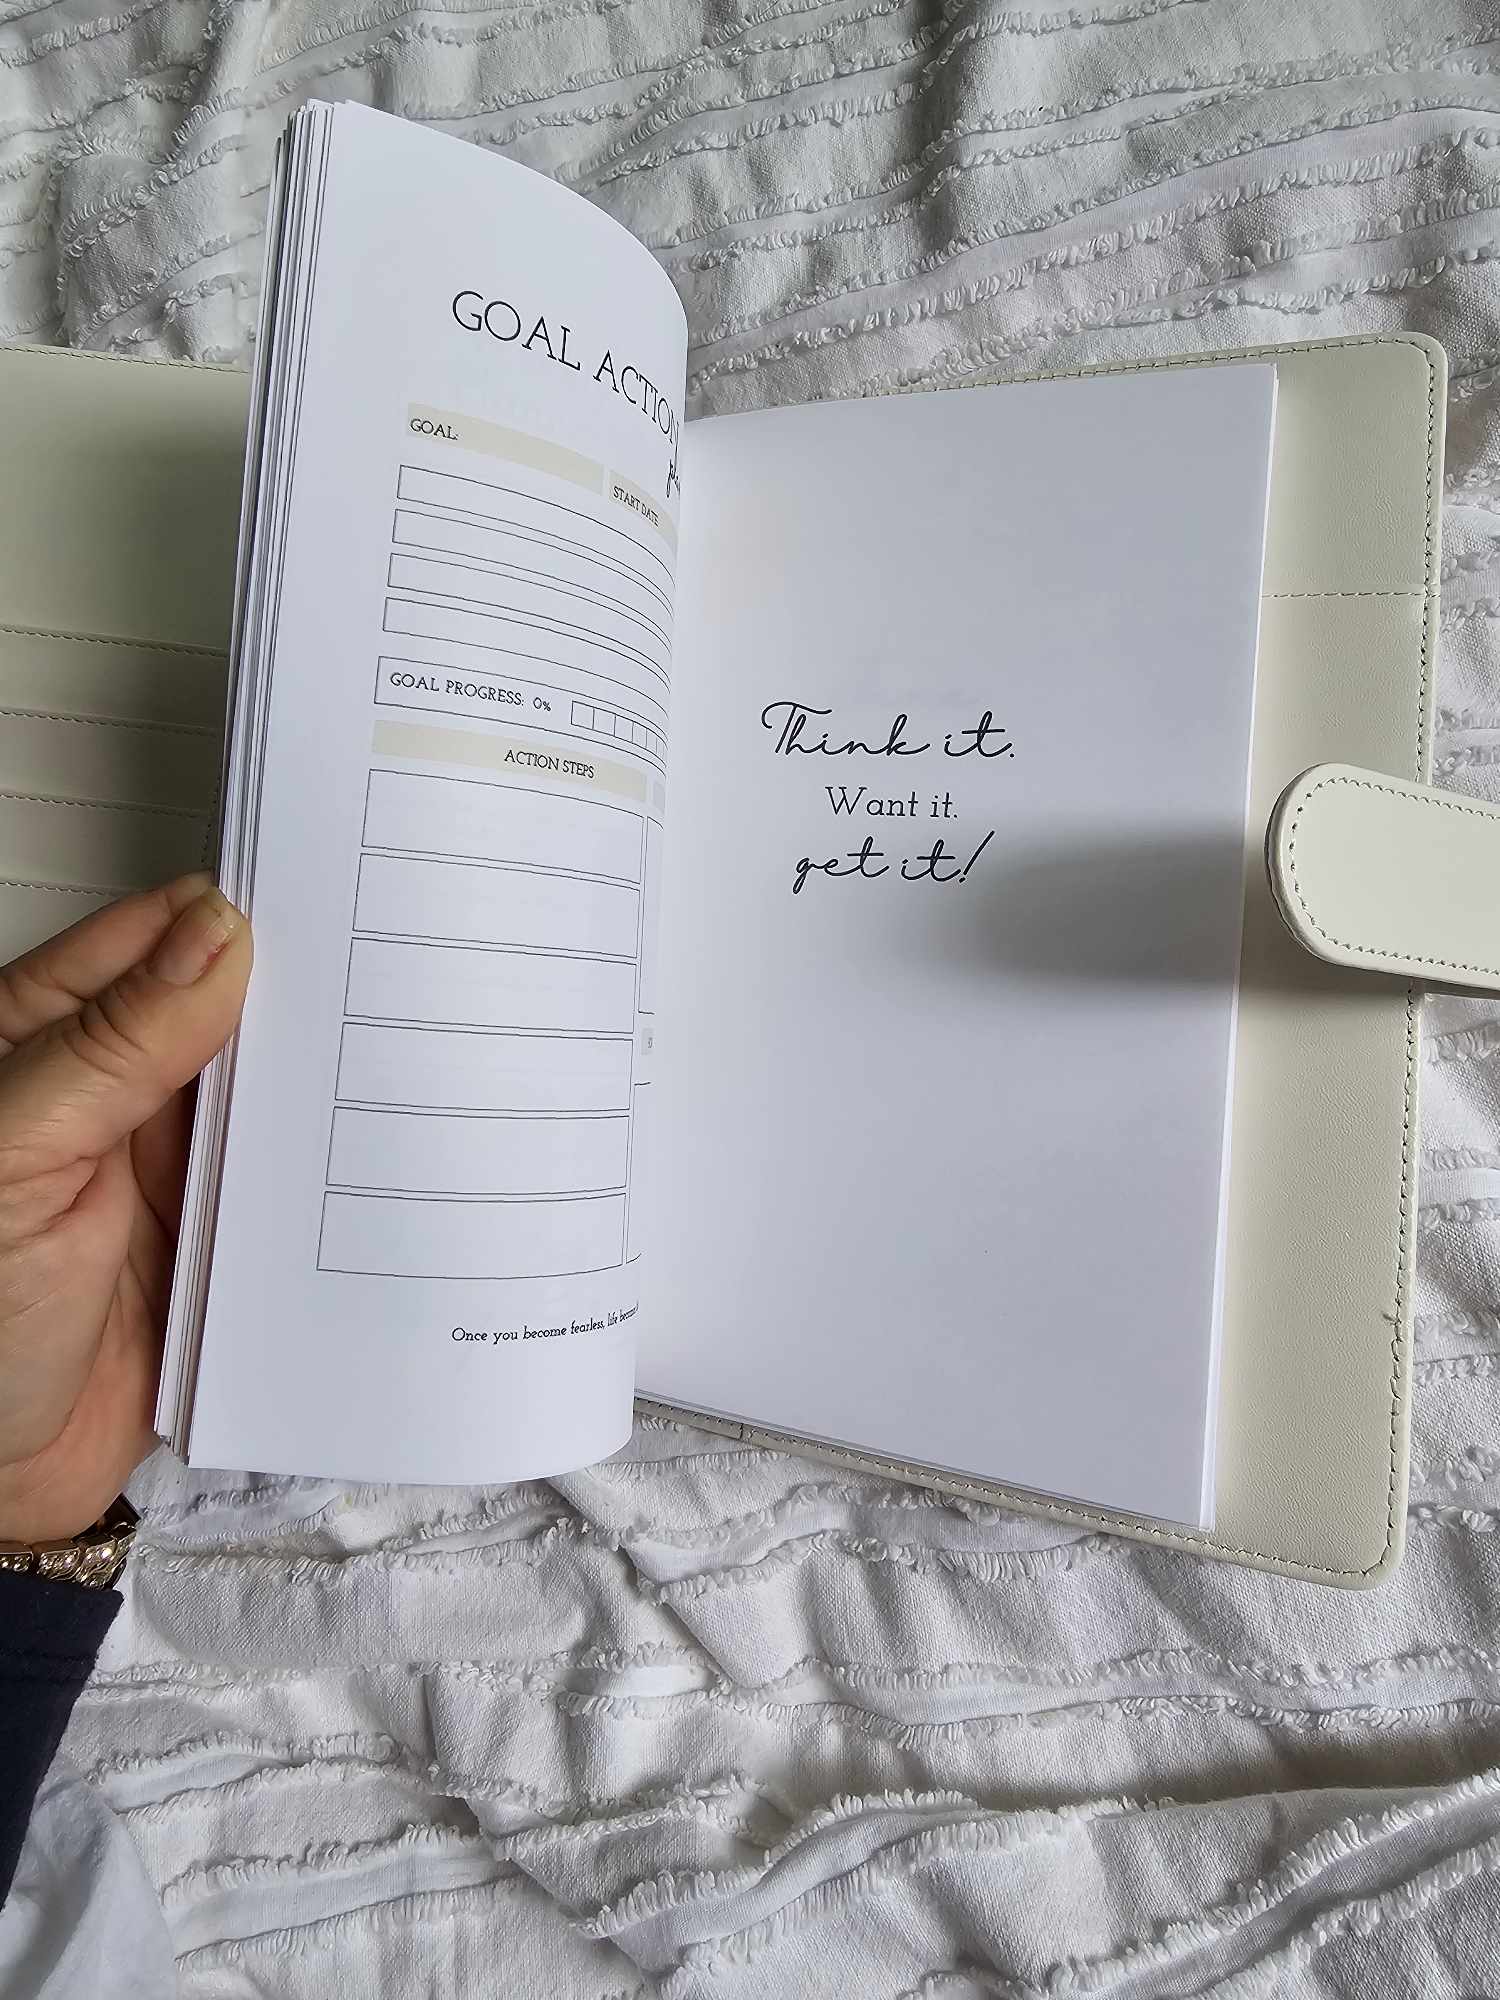 GOAL ACTION
GOAL:
START DATE
GOAL PROGRESS: 0%
ACTION STEPS
Once you become fearless, life
Think it.
Want it.
get it!